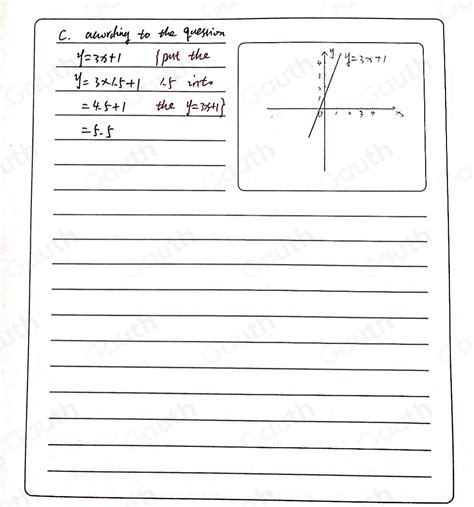 C. according to the question
y=3x+1 {put the
y=3×1.5+1 1.5 into
=4.5+1 the y=3x+1}
=5.5
y
y=3x+1
4
3
2
1
0 1 2 3 4 x
Gauth